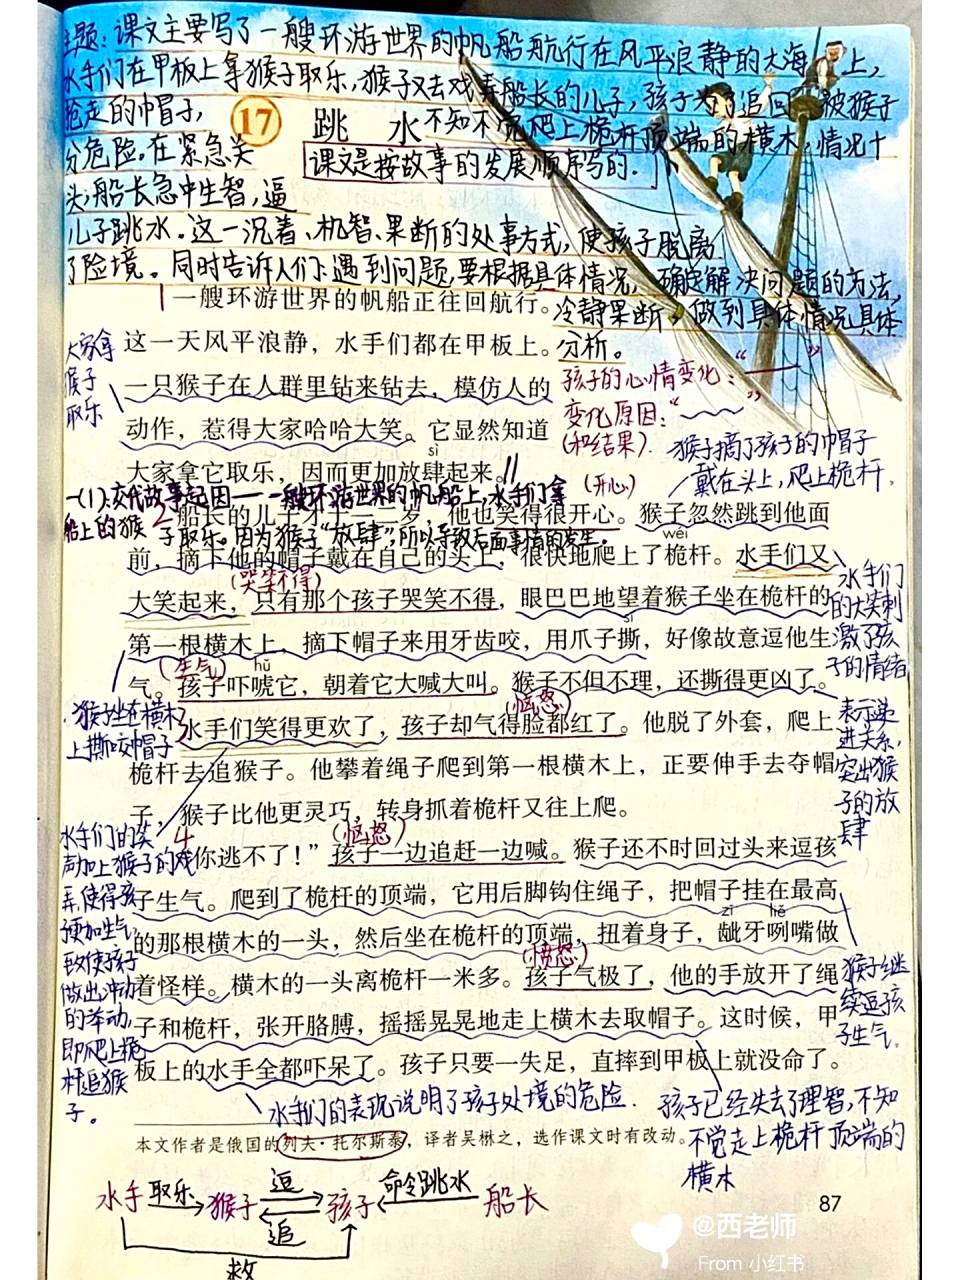 主题：课文主要写了一艘环游世界的帆船航行在风平浪静的大海上，
水手们在甲板上拿猴子取乐，猴子又去戏弄船长的儿子，孩子为了追回被猴子
抢走的巾冒子，
不知不觉爬上桅杆顶端的横木，情况十
分危险。在紧急关
头，船长急中生智，逼
儿子跳水。这一沉着、机智、果断的处事方式，使孩子脱离
了险境。同时告诉人们：遇到问题，要根据具体情况，确定解决问题的方法，
冷静果断，做到具体情况具体
分析。
17 跳 水
课文是按故事的发展顺序写的.
1 一艘环游世界的帆船正往回航行。
这一天风平浪静，水手们都在甲板上。
一只猴子在人群里钻来钻去，模仿人的
动作，惹得大家哈哈大笑。它显然知道
sì
大家拿它取乐，因而更加放肆起来。
大家拿
猴子
取乐
孩子的心情变化：“——”
变化原因：“～～”
(和结果).
猴子摘了孩子的巾冒子
戴在头上，爬上桅杆.
一(1).交代故事起因——一艘环游世界的帆船上，水手们拿
船上的猴子取乐。因为猴子“放肆”，所以导致后面事情的发生.
(开心)
2 船长的儿子才十一二岁，他也笑得很开心。猴子忽然跳到他面
wéi
前，摘下他的帽子戴在自己的头上，很快地爬上了桅杆。水手们又
(哭笑不得)
大笑起来，只有那个孩子哭笑不得，眼巴巴地望着猴子坐在桅杆的
sī
第一根横木上，摘下帽子来用牙齿咬，用爪子撕，好像故意逗他生
(生气)
hǔ
气。孩子吓唬它，朝着它大喊大叫。猴子不但不理，还撕得更凶了。
水手们
的大笑刺
激了孩
子的情绪
猴子坐在横木
上撕咬帽子
(恼怒)
3 水手们笑得更欢了，孩子却气得脸都红了。他脱了外套，爬上
桅杆去追猴子。他攀着绳子爬到第一根横木上，正要伸手去夺帽
子，猴子比他更灵巧，转身抓着桅杆又往上爬。
表示递
进关系，
突出猴
子的放
肆
(恼怒)
4 “你逃不了！”孩子一边追赶一边喊。猴子还不时回过头来逗孩
子生气。爬到了桅杆的顶端，它用后脚钩住绳子，把帽子挂在最高
zī liě
的那根横木的一头，然后坐在桅杆的顶端，扭着身子，龇牙咧嘴做
(愤怒)
着怪样。横木的一头离桅杆一米多。孩子气极了，他的手放开了绳
子和桅杆，张开胳膊，摇摇晃晃地走上横木去取帽子。这时候，甲
板上的水手全都吓呆了。孩子只要一失足，直摔到甲板上就没命了。
水手们的笑
声加上猴子的戏
弄，使得孩子
更加生气，
致使孩子
做出冲动
的举动，
即爬上桅
杆追猴
子。
猴子继
续逗孩
子生气.
水手们的表现说明了孩子处境的危险.
孩子已经失去了理智，不知
不觉走上桅杆顶端的
横木
本文作者是俄国的列夫·托尔斯泰，译者吴楙之，选作课文时有改动。
水手 取乐 猴子 逗 追 孩子 命令跳水 船长
救
87
@西老师
From 小红书